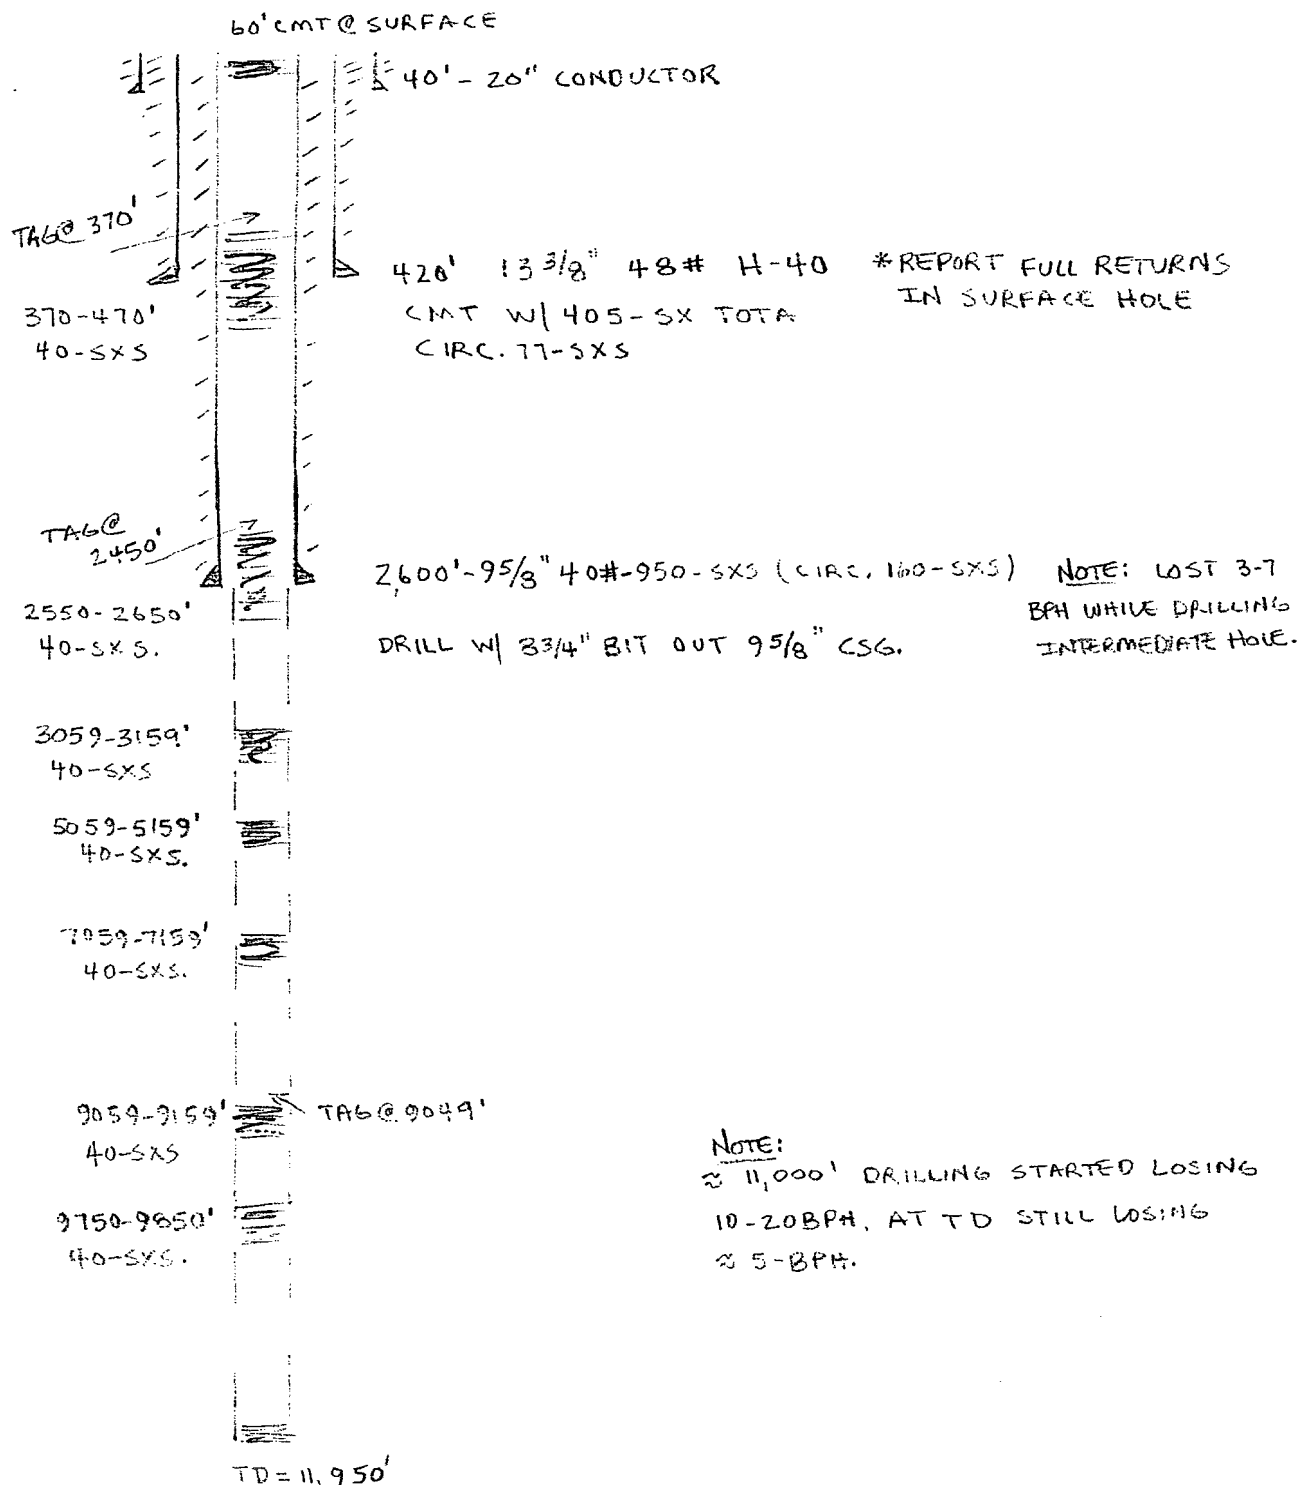 60' CMT @ SURFACE
40' - 20" CONDUCTOR
TAG @ 370'
420' 13 3/8" 48# H-40
CMT W/ 405-SX TOTA
CIRC. 77-SXS
*REPORT FULL RETURNS
IN SURFACE HOLE
370-470'
40-SXS
TAG@
2450'
2,600'-9 5/8" 40#-950-SXS (CIRC. 160-SXS)
NOTE: LOST 3-7
BPH WHILE DRILLING
INTERMEDIATE HOLE.
2550-2650'
40-SXS.
DRILL W/ 8 3/4" BIT OUT 9 5/8" CSG.
3059-3159'
40-SXS
5059-5159'
40-SXS.
7059-7159'
40-SXS.
9059-9159'
40-SXS
TAG@9049'
NOTE:
≈ 11,000' DRILLING STARTED LOSING
10-20BPH, AT TD STILL LOSING
≈ 5-BPH.
9750-9850'
40-SXS.
TD = 11,950'